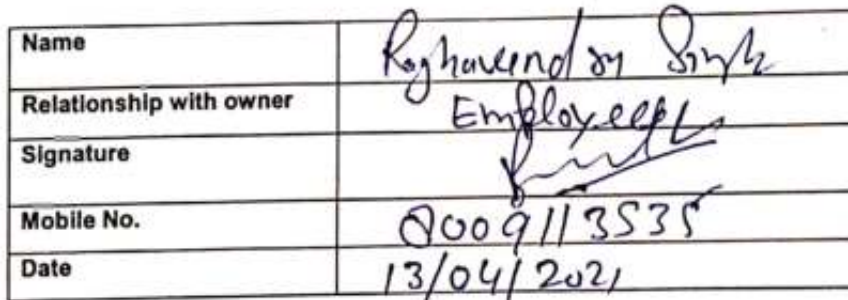 Name Raghavendra Singh
Relationship with owner Employee
Signature
Mobile No. 8009113535
Date 13/04/2021